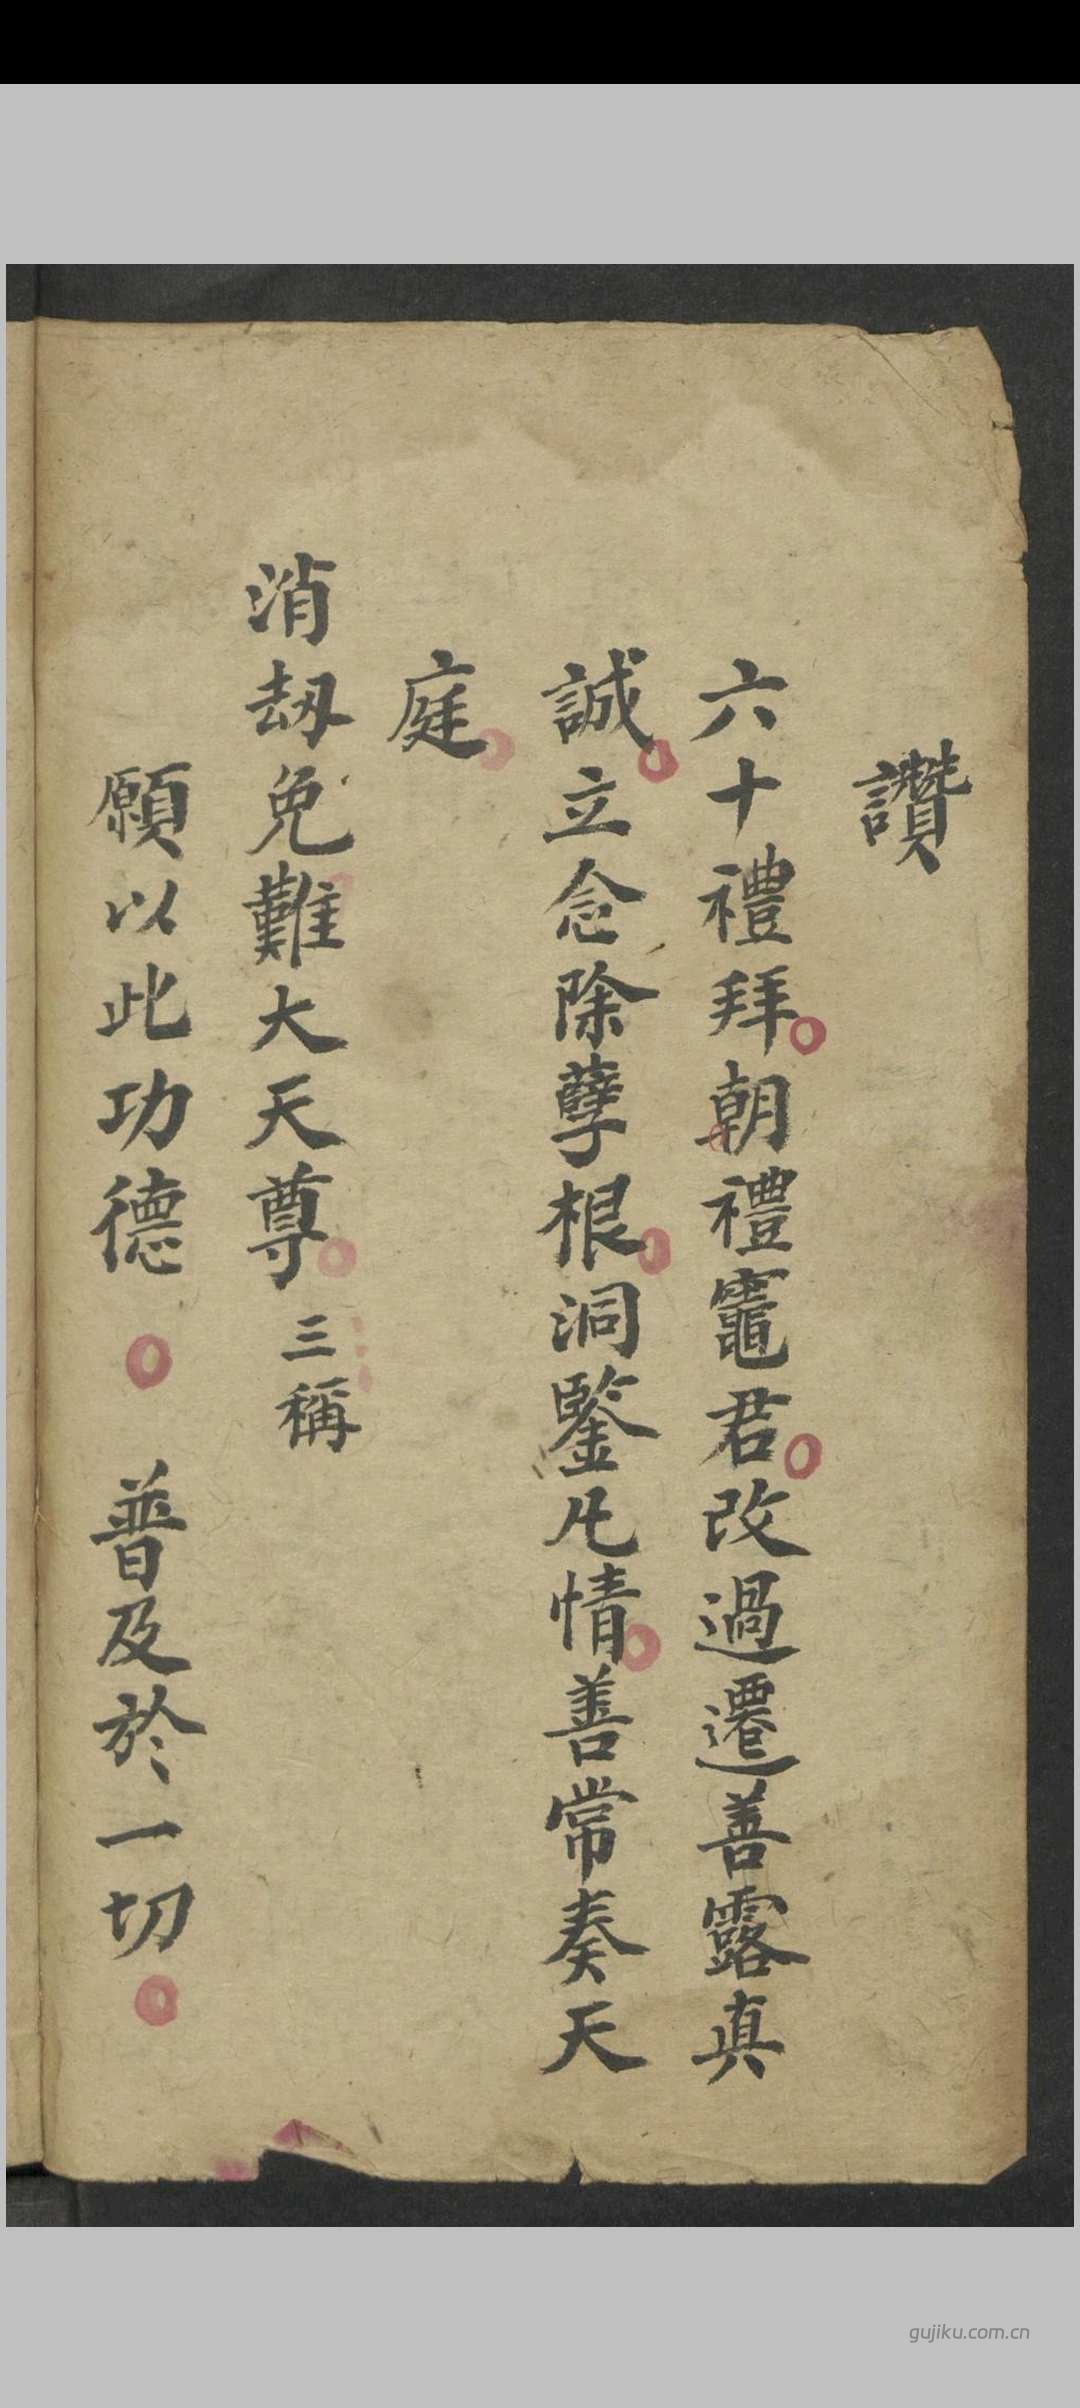 讚
六十禮拜朝禮竈君改過遷善露真
誠立念除孽根洞鑒凡情善常奏天
庭
消刼免難大天尊三稱
願以此功德 普及於一切
gujiku.com.cn